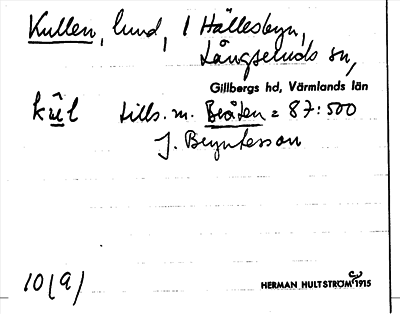 Kullen, lund, 1 Hällesbyn,
Långseruds sn,
Gillbergs hd, Värmlands län
kûl tills. m. Bråten = 87:500
J. Bryntesson
10(a) HERMAN HULTSTRÖM 1915